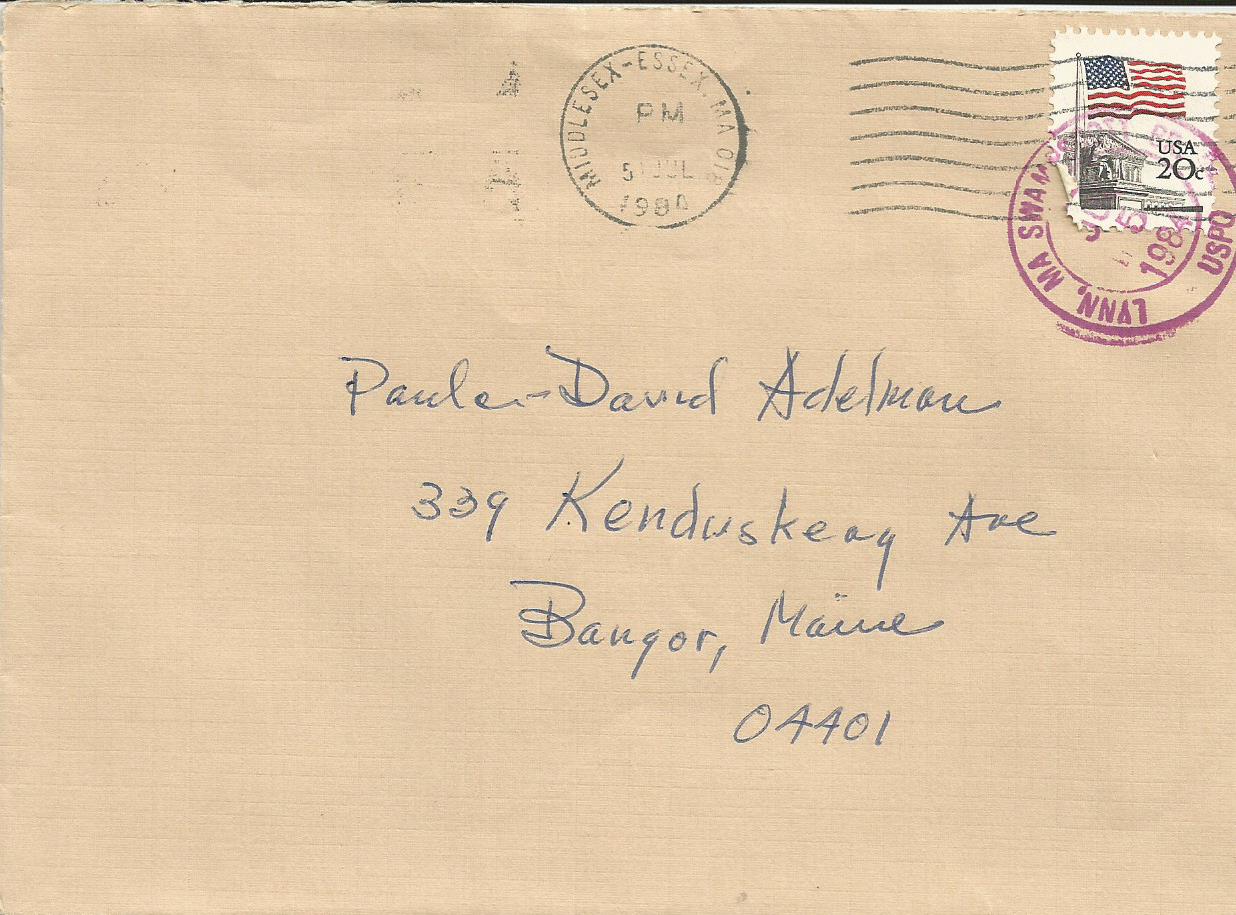 MIDDLESEX-ESSEX, MA
PM
5 JUL
1984
USA
20c
LYNN, MA
USPO
5
1984
Paula-David Adelman
339 Kenduskeag Ave
Bangor, Maine
04401